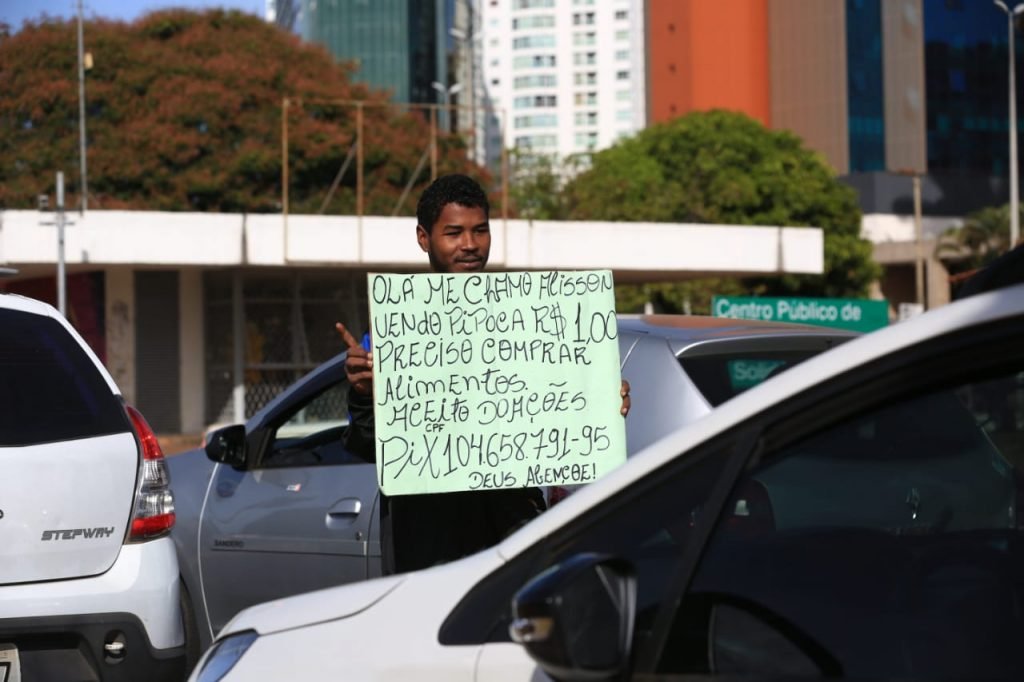 OLÁ ME CHAMO ALISSON
VENDO PIPOCA R$ 1,00
PRECISO COMPRAR
ALIMENTOS.
ACEITO DOAÇÕES
CPF
PIX 104.658.791-95
DEUS ABENÇOE!
Centro Público de
STEPWAY
SANDERO